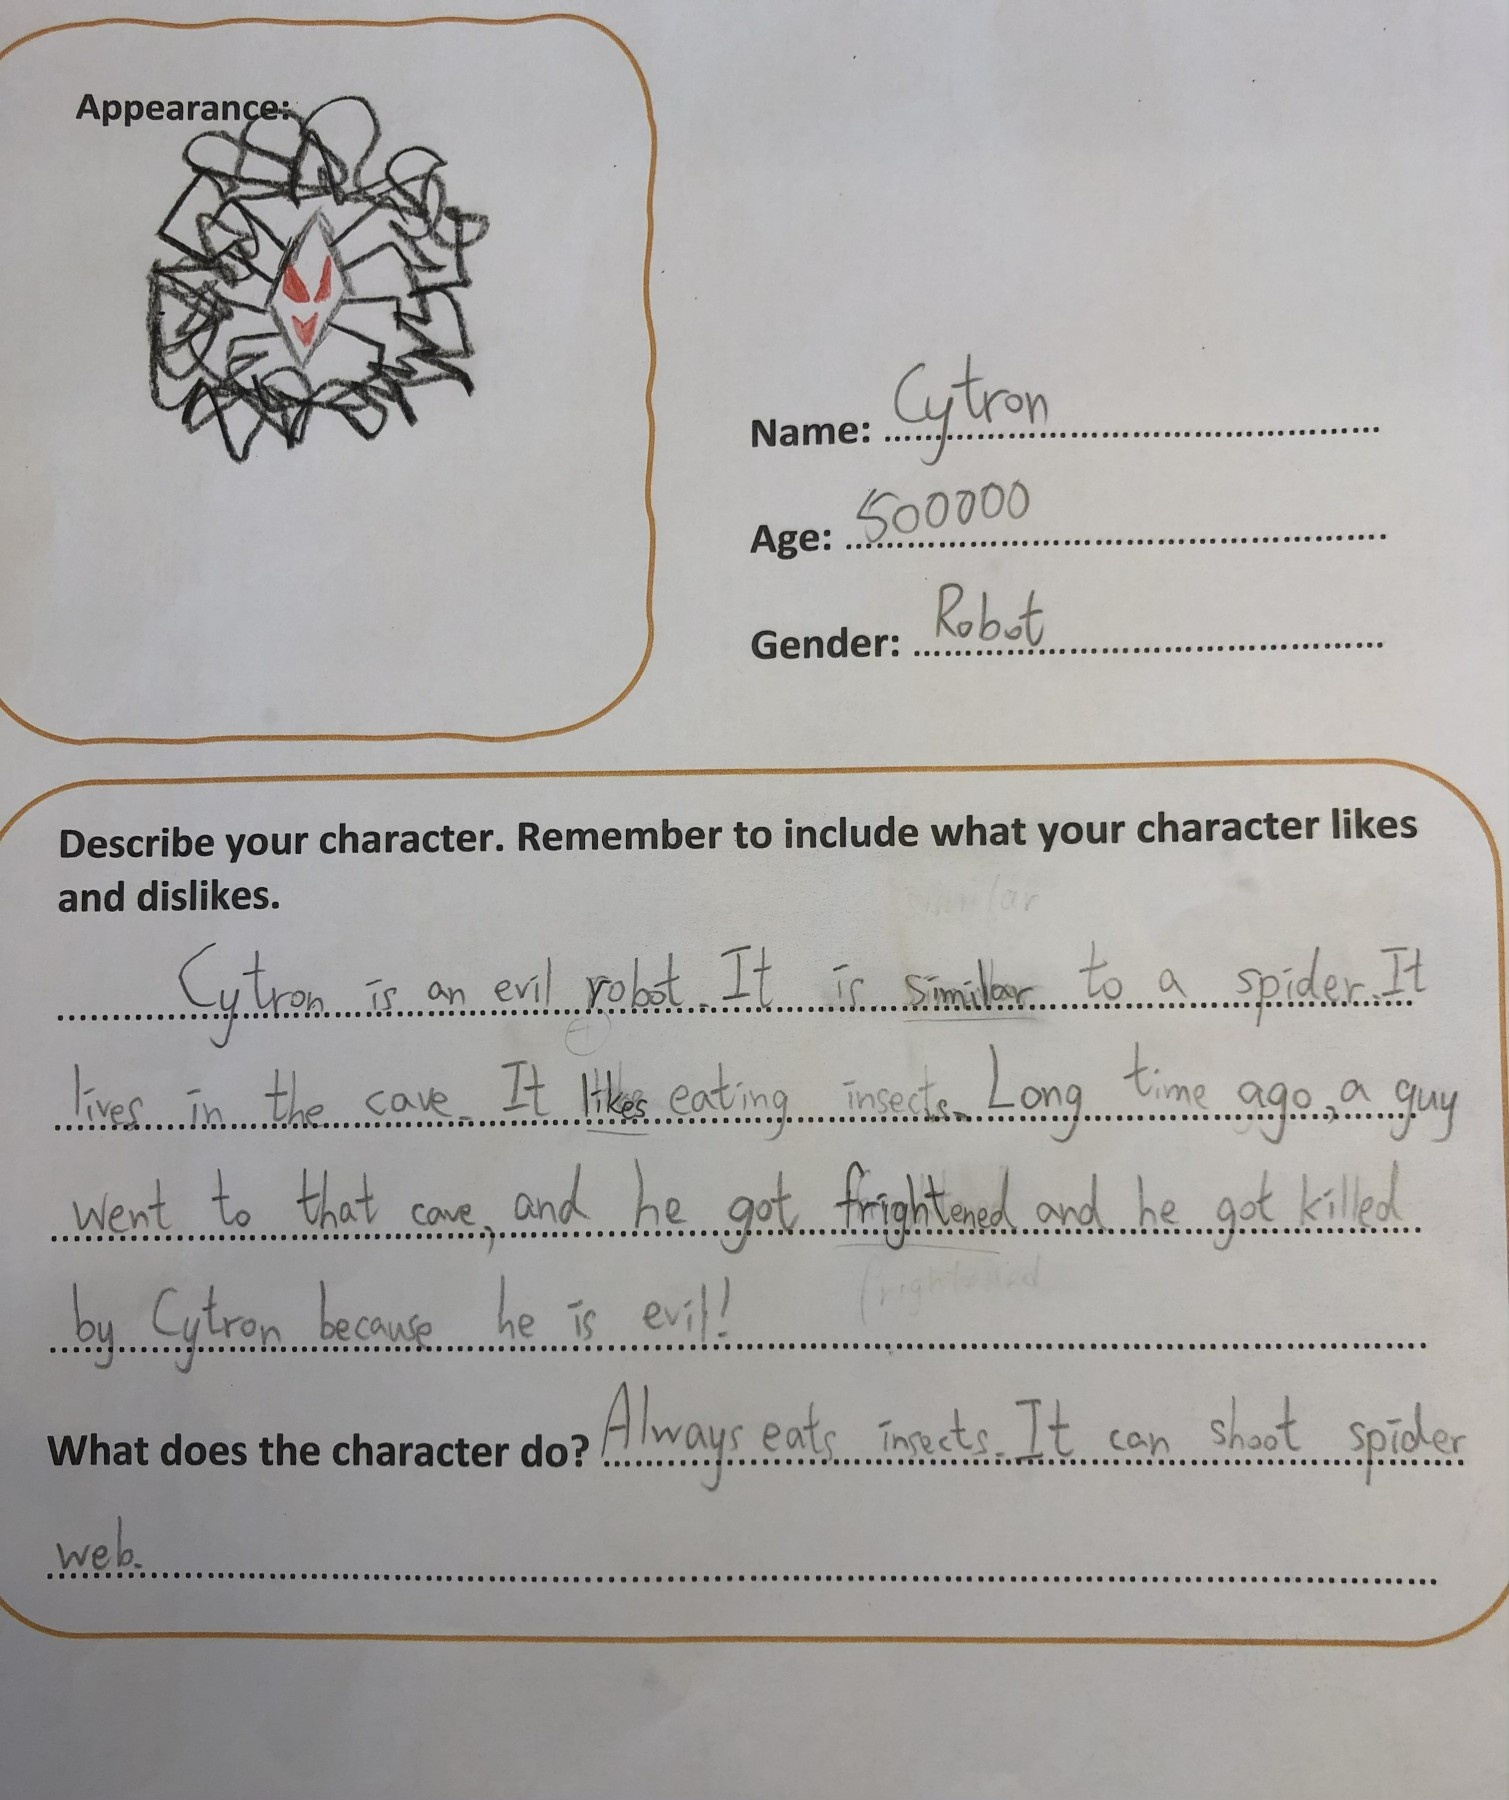 Appearance:
Name: Cytron
Age: 500000
Gender: Robot
Describe your character. Remember to include what your character likes
and dislikes.
similar
Cytron is an evil robot. It is similar to a spider. It
lives in the cave. It likes eating insects. Long time ago, a guy
went to that cave, and he got frightened and he got killed
frightened
by Cytron because he is evil!
What does the character do? Always eats insects. It can shoot spider
web.